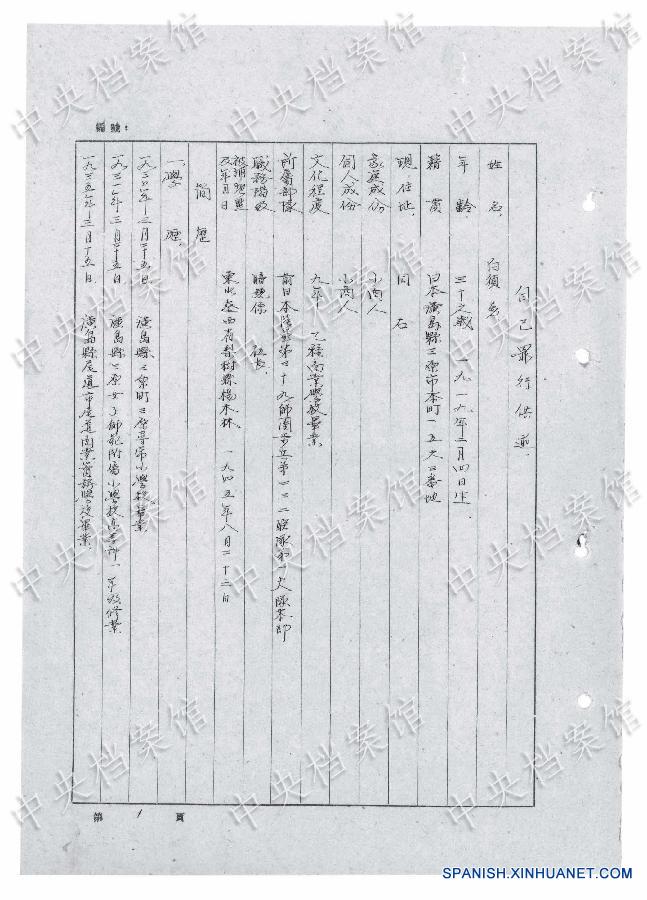 編號：
自己罪行供述
姓名
年齡 三十六歲 一九一九年三月四日生
籍貫 日本廣島縣三原市本町一五六〇番地
現住址 同右
家庭成份 小商人
個人成份 小商人
文化程度 九年 乙種商業學校畢業
所屬部隊
職務階級 伍長
被捕地點及年月日 東北泰西省梨樹縣楊木林 一九四五年八月二十二日
簡歷
一、學歷
月二十五日 廣島縣三原町三原尋常小學校畢業
月二十五日 廣島縣三原女子師範附屬小學校高等科一年級修業
一九三五年三月二十五日 廣島縣尾道市尾道商業 學校畢業
第 1 頁
中央档案馆
SPANISH.XINHUANET.COM